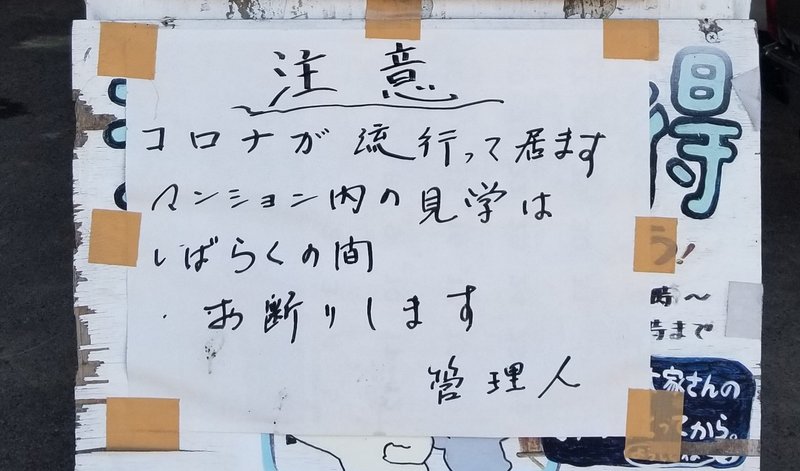 注意
コロナが流行って居ます
マンション内の見学は
しばらくの間
お断りします
管理人
得
う!
時〜
時まで
家さんの
ってから。